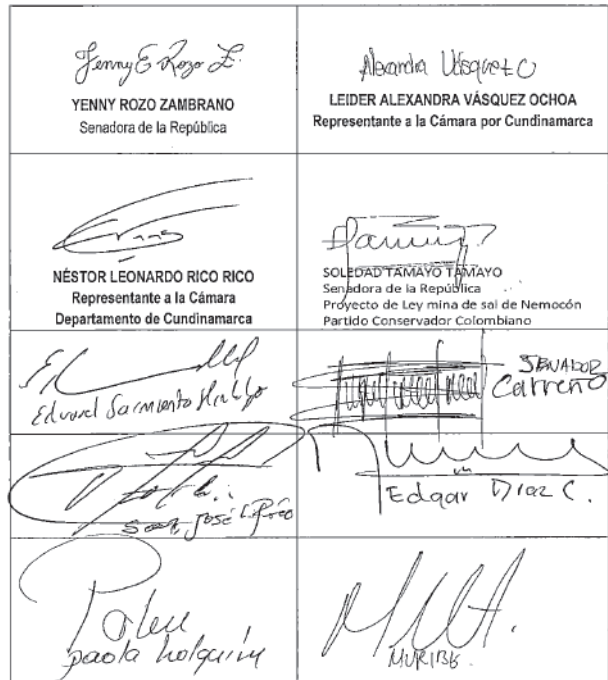 Jenny E Rozo Z.
YENNY ROZO ZAMBRANO
Senadora de la República
Alexandra Vásquez O
LEIDER ALEXANDRA VÁSQUEZ OCHOA
Representante a la Cámara por Cundinamarca
NÉSTOR LEONARDO RICO RICO
Representante a la Cámara
Departamento de Cundinamarca
SOLEDAD TAMAYO TAMAYO
Senadora de la República
Proyecto de Ley mina de sal de Nemocón
Partido Conservador Colombiano
Eduard Sarmiento Hidalgo
SENADOR
Carreño
José
Edgar Díaz C.
paola holguín
MURIBE.